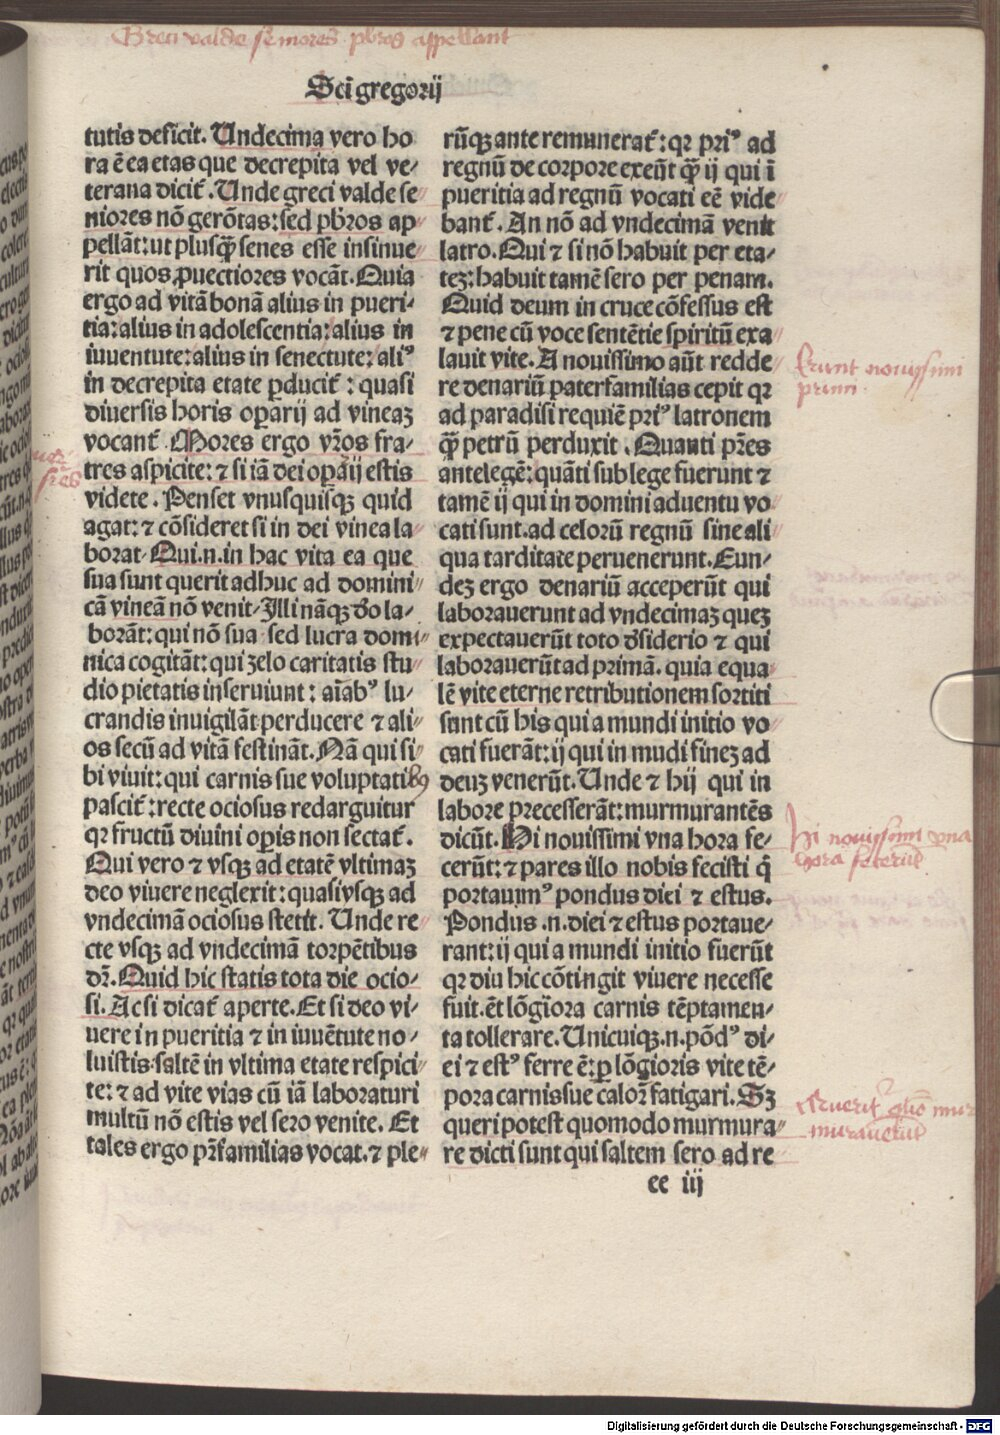 Greci valde seniores pbros appellant
Sci gregorij
tutis deficit. Undecima vero ho
ra ē ea etas que decrepita vel ve⸗
terana dicit̄. Unde greci valde se
niores nō gerōtas: sed pbros ap
pellāt: ut plusq̄ senes esse insinue
rit quos ꝓuectiores vocāt. Quia
ergo ad vitā bonā alius in pueri⸗
tia: alius in adolescentia: alius in
iuuentute: alius in senectute: aliꝰ
in decrepita etate ꝑducit̄: quasi
diuersis horis oꝑarij ad vineaꝫ
vocant̄. Mores ergo vr̄os fra⸗
tres aspicite: ⁊ si iā dei oꝑarij estis
videte. Penset vnusquisqꝫ quid
agat: ⁊ cōsideret si in dei vinea la⸗
borat. Qui.n.in hac vita ea que
sua sunt querit adhuc ad domini⸗
cā vineā nō venit. Illi nāqꝫ dō la⸗
borāt: qui nō sua sed lucra domi⸗
nica cogitāt: qui zelo caritatis stu
dio pietatis inseruiunt: aīabꝰ lu⸗
crandis inuigilāt perducere ⁊ ali⸗
os secū ad vitā festināt. Nā qui si
bi viuit: qui carnis sue voluptatibꝰ
pascit̄: recte ociosus redarguitur
qꝛ fructū diuini oꝑis non sectat̄.
Qui vero ⁊ vsqꝫ ad etatē vltimaꝫ
deo viuere neglexit: quasi vsqꝫ ad
vndecimā ociosus stetit. Unde re
cte vsqꝫ ad vndecimā torpētibus
dr̄. Quid hic statis tota die ocio⸗
si. Ac si dicat̄ aperte. Et si deo vi⸗
uere in pueritia ⁊ in iuuētute no⸗
luistis saltē in vltima etate respici⸗
te: ⁊ ad vite vias cū iā laboraturi
multū nō estis vel sero venite. Et
tales ergo pr̄familias vocat. ⁊ ple⸗
rūqꝫ ante remunerat̄: qꝛ priꝰ ad
regnū de corpore exeūt q̄ ij qui ī
pueritia ad regnū vocati eē vide
bant̄. An nō ad vndecimā venit
latro. Qui ⁊ si nō habuit per eta⸗
teꝫ: habuit tamē sero per penam.
Quid deum in cruce cōfessus est
⁊ pene cū voce sentētie spiritū exa
lauit vite. A nouissimo aūt redde
re denariū paterfamilias cepit qꝛ
ad paradisi requiē priꝰ latronem
q̄ petrū perduxit. Quanti pr̄es
antelegē: quāti sub lege fuerunt ⁊
tamē ij qui in domini aduentu vo
cati sunt.ad celorū regnū sine ali
qua tarditate peruenerunt. Eun⸗
deꝫ ergo denariū acceperūt qui
laborauerunt ad vndecimaꝫ queꝫ
expectauerūt toto dsiderio ⁊ qui
laborauerūt ad primā. quia equa
lē vite eterne retributionem sortiti
sunt cū his qui a mundi initio vo
cati fuerāt: ij qui in mudi fineꝫ ad
deuꝫ venerūt. Unde ⁊ hij qui in
labore precesserāt: murmurantēs
dicūt. Hi nouissimi vna hora fe⸗
cerūt: ⁊ pares illo nobis fecisti q̄
portauimꝰ pondus diei ⁊ estus.
Pondus .n. diei ⁊ estus portaue⸗
rant: ij qui a mundi initio fuerūt
qꝛ diu hic cōtingit viuere necesse
fuit. ēt lōgiora carnis tēptamen⸗
ta tollerare. Unicuiqꝫ.n.pōdꝰ di⸗
ei ⁊ estꝰ ferre ē: ꝑ lōgioris vite tē⸗
pora carnis sue caloꝝ fatigari. Sꝫ
queri potest quomodo murmura⸗
re dicti sunt qui saltem sero ad re
ee iij
Erunt nouissimi
primi.
Hi nouissimi vna
hora fecerūt
murauerūt